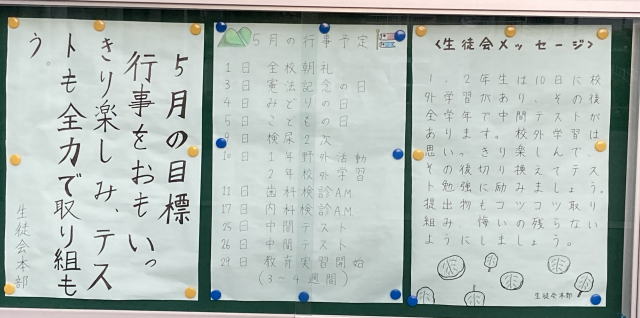 5月の目標
行事をおもいっ
きり楽しみ、テス
トも全力で取り組も
う。
生徒会本部
5月の行事予定
1日 全校朝礼
3日 憲法記念の日
4日 みどりの日
5日 こどもの日
9日 検尿2次
10日 1年野外活動
2年校外学習
11日 歯科検診A.M.
17日 内科検診A.M.
25日 中間テスト
26日 中間テスト
29日 教育実習開始
(3〜4週間)
<生徒会メッセージ>
1、2年生は10日に校
外学習があり、その後
全学年で中間テストが
あります。校外学習は
思いっきり楽しんで、
その後切り換えてテス
ト勉強に励みましょう。
提出物もコツコツ取り
組み、悔いの残らない
ようにしましょう。
生徒会本部